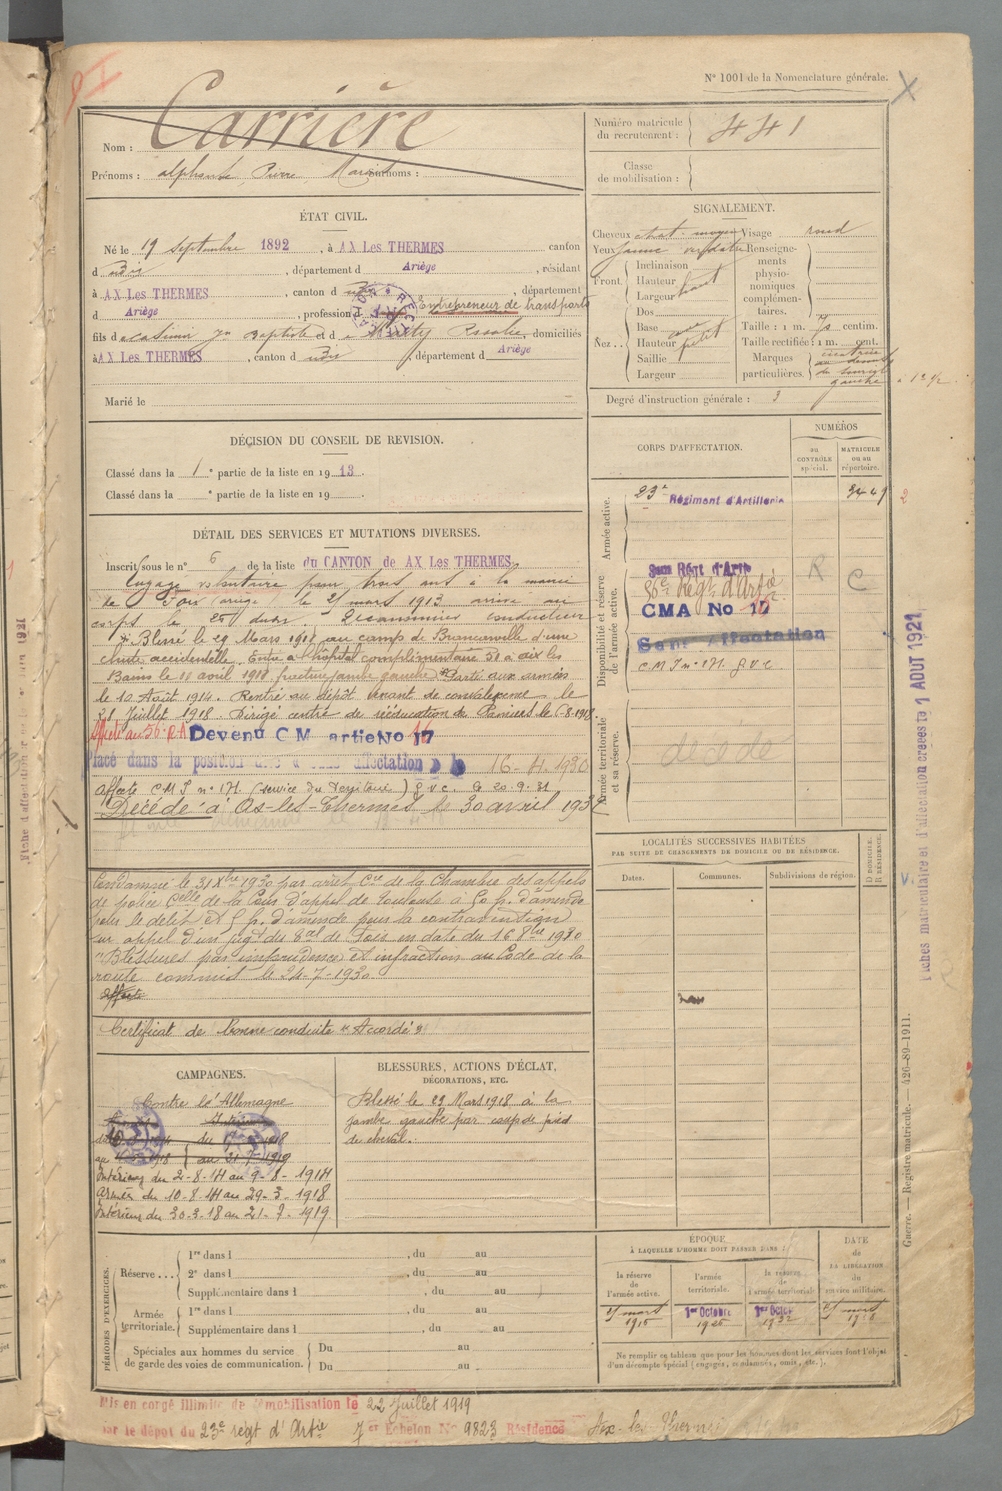 N° 1001 de la Nomenclature générale.
Nom : Carrière
Prénoms : alphonse Pierre Marie Surnoms :
Numéro matricule du recrutement : 441
Classe de mobilisation :
ÉTAT CIVIL.
Né le 19 septembre 1892, à AX Les THERMES canton
d udit, département d Ariège, résidant
à AX Les THERMES, canton d udit, département
d Ariège, profession d Entrepreneur de transports
fils de Casimir Jn Baptiste et de Marty Rosalie, domiciliés
à AX Les THERMES, canton d udit, département d Ariège
Marié le
SIGNALEMENT.
Cheveux chat. moyen Visage rond
Yeux jaune verdatre Renseignements physionomiques complémentaires
Front Inclinaison
Hauteur haut
Largeur
Nez Dos
Base
Hauteur petit
Saillie
Largeur
Taille : 1 m. centim.
Taille rectifiée : 1 m. cent.
Marques particulières. cicatrice au dessus du sourcil gauche
Degré d'instruction générale : 3
DÉCISION DU CONSEIL DE REVISION.
Classé dans la 1e partie de la liste en 1913.
Classé dans la e partie de la liste en 19
CORPS D'AFFECTATION.
NUMÉROS
au CONTRÔLE spécial.
MATRICULE ou au répertoire.
Armée active.
23e Régiment d'Artillerie
Disponibilité et réserve de l'armée active.
56e Régt d'Artie
CMA No 17
Sans Affectation
C M I n° 171 G V C
R
C
2
Armée territoriale et sa réserve.
décédé
DÉTAIL DES SERVICES ET MUTATIONS DIVERSES.
Inscrit sous le n° 6 de la liste du CANTON de AX Les THERMES
Engagé volontaire pour trois ans à la mairie
de Foix (ariège) le 25 mars 1913 arrivé au
corps le 25 dudit. 2e canonnier conducteur
Blessé le 29 Mars 1918 au camp de d'une
chute accidentelle. Entré à l'hôpital complémentaire 51 à aix les
Bains le 11 avril 1918, fracture jambe gauche Parti aux armées
le 10 Août 1914. Rentré au dépôt venant de convalescence le
21 Juillet 1918. Dirigé centre de rééducation de Pamiers le 6-8-1918.
Affecté au 56e R A Devenu C M artie No 17
Placé dans la position dite d sans affectation 16-4-1930
Affecté C M I n° 171 (service du Territoire) G V C le 20.9.31
Décédé à Ax-les-Thermes le 30 avril 193
Condamné le 31 Xbre 1930 par arrêt Cre de la Chambre des appels
de police Celle de la Cour d'appel de Toulouse à 50 fr. d'amende
pour le délit et 5 fr. d'amende pour la contravention
sur appel d'un jugt du Bal de Foix en date du 16 8bre 1930
"Blessures par imprudence et infraction au Code de la
route commis le 24-7-1930
Affecté
Certificat de bonne conduite "Accordé"
LOCALITÉS SUCCESSIVES HABITÉES
PAR SUITE DE CHANGEMENTS DE DOMICILE OU DE RÉSIDENCE.
Dates.
Communes.
Subdivisions de région.
D DOMICILE. R RÉSIDENCE.
CAMPAGNES.
Contre l'Allemagne
Intérieur du 2-8-14 au 9-8-1914
Armées du 10-8-14 au 29-3-1918
Intérieur du 30-3-18 au 21-7-1919.
BLESSURES, ACTIONS D'ÉCLAT,
DÉCORATIONS, ETC.
Blessé le 29 Mars 1918 à la
jambe gauche par coup de pied
de cheval.
PÉRIODES D'EXERCICES.
Réserve... 1re dans l, du au
2e dans l, du au
Supplémentaire dans l, du au
Armée territoriale. 1re dans l, du au
Supplémentaire dans l, du au
Spéciales aux hommes du service de garde des voies de communication. Du au
Du au
ÉPOQUE
À LAQUELLE L'HOMME DOIT PASSER DANS :
la réserve de l'armée active.
l'armée territoriale.
la réserve de l'armée territoriale
DATE de LA LIBÉRATION du service militaire.
25 mars 1916
1er Octobre 1926
1er Octo 1932
Ne remplir ce tableau que pour les hommes dont les services font l'objet
d'un décompte spécial (engagés, condamnés, omis, etc.).
Mis en congé illimité de démobilisation le 22 Juillet 1919
par le dépôt du 23e régt d'Artie 7er Echelon No 9823 Résidence Ax-les-Thermes
Fiches matriculaire et d'affectation créées le 1 AOUT 1921
Guerre. — Registre matricule. — 426-89-1911.